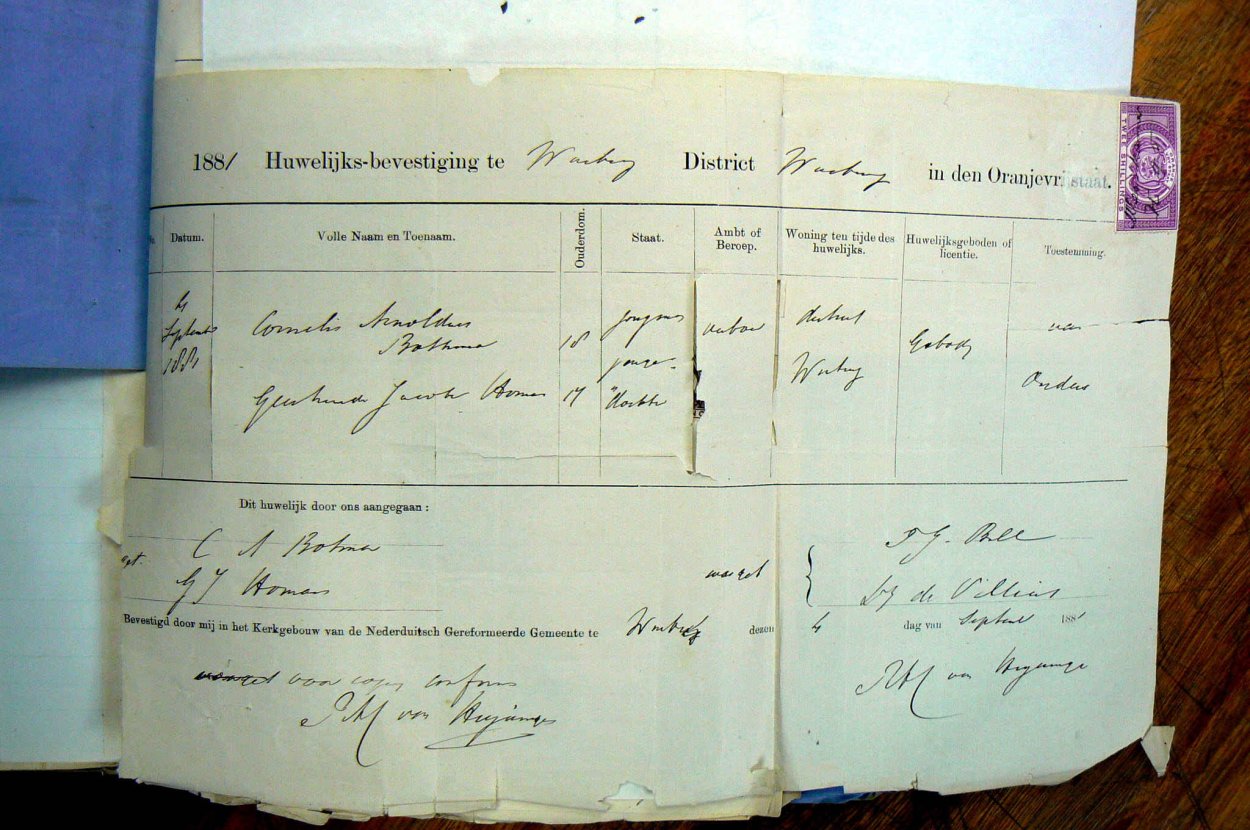 1881 Huwelijks-bevestiging te Winburg District Winburg in den Oranjevrijstaat.
TWEE SHILLINGS
No. Datum. Volle Naam en Toenaam. Ouderdom. Staat. Ambt of Beroep. Woning ten tijde des huwelijks. Huwelijksgeboden of licentie. Toestemming.
4
September
1881
Cornelis Arnoldus
Bothma
18
jongman
district
Geboden
van
Jacoba Homan
17
jonge
dochter
Winburg
Ouders
Dit huwelijk door ons aangegaan :
C A Botma
get.
G J Homan
was get
de Villiers
Bevestigd door mij in het Kerkgebouw van de Nederduitsch Gereformeerde Gemeente te Winburg dezen 4 dag van September 1881
voor copy conform
van
van